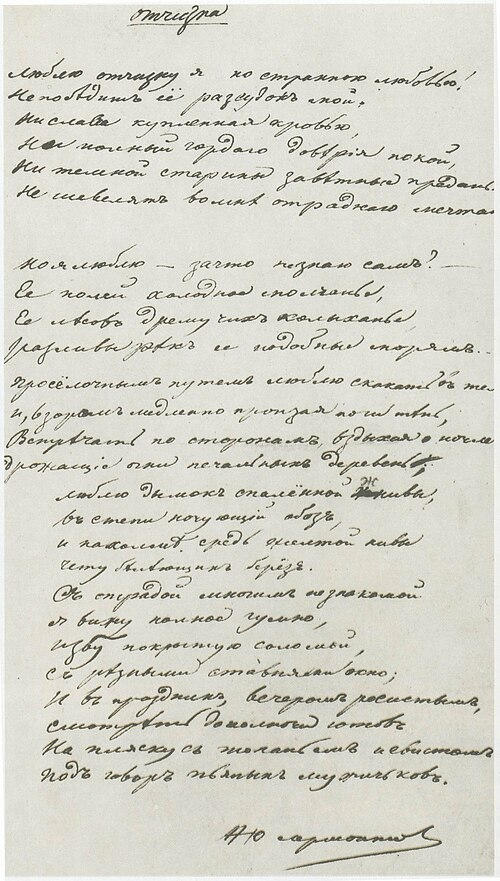 Отчизна
Люблю отчизну я, но странною любовью!
Непобѣдитъ её разсудокъ мой.
Ни слава купленная кровью,
Ни полный гордаго довѣрія покой,
Ни темной старины завѣтные предань
Не шевелятъ во мнѣ отраднаго мечта
Но я люблю — за что не знаю самъ? —
Ее полей холодное молчанье,
Ее лѣсовъ дремучихъ колыханье
разливы рѣкъ ее подобные морямъ.
Просёлочнымъ путемъ люблю скакать въ те
и, взоромъ медленно пронзая ночи тѣнь,
Встрѣчать по сторонамъ, вздыхая о ночле
дрожащіе огни печальныхъ деревень;
люблю дымокъ спалённой жнивы,
въ степи ночующій обозъ,
и на холмѣ средь желтой нивы
чету бѣлѣющихъ берёзъ.
Съ отрадой многимъ незнакомой
я вижу полное гумно,
избу покрытую соломой,
съ рѣзными ставнями окно;
И въ праздникъ, вечеромъ росистымъ,
смотрѣть до полночи готовъ
На пляску съ топаньемъ и свистомъ
подъ говоръ пьяныхъ мужичковъ.
М Ю Лермонтов